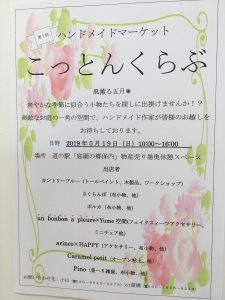 第1回 ハンドメイドマーケット
こっとんくらぶ
風薫る五月☀
爽やかな季節に似合う小物たちを探しに出掛けませんか！？
素敵なお庭の一角の空間で、ハンドメイド作家が皆様のお越しを
お待ちしております。
日時 2019年5月19日（日）10:00〜16:00
場所 道の駅「庭園の郷保内」物産売り場奥休憩スペース
出店者
カントリーグルー（トールペイント、木製品、ワークショップ）
さくらんぼ（布小物、他）
ポルカ（布小物、他）
un bonbon a plaisir×Yume空間（フェイクスイーツアクセサリー、
ミニチュア他）
arinco×HAPPY（アクセサリー、布小物、他）
Caramel petit（オープン粘土、他）
Pino（畳へり雑貨、布小物、他）
お問い合わせ先・小川